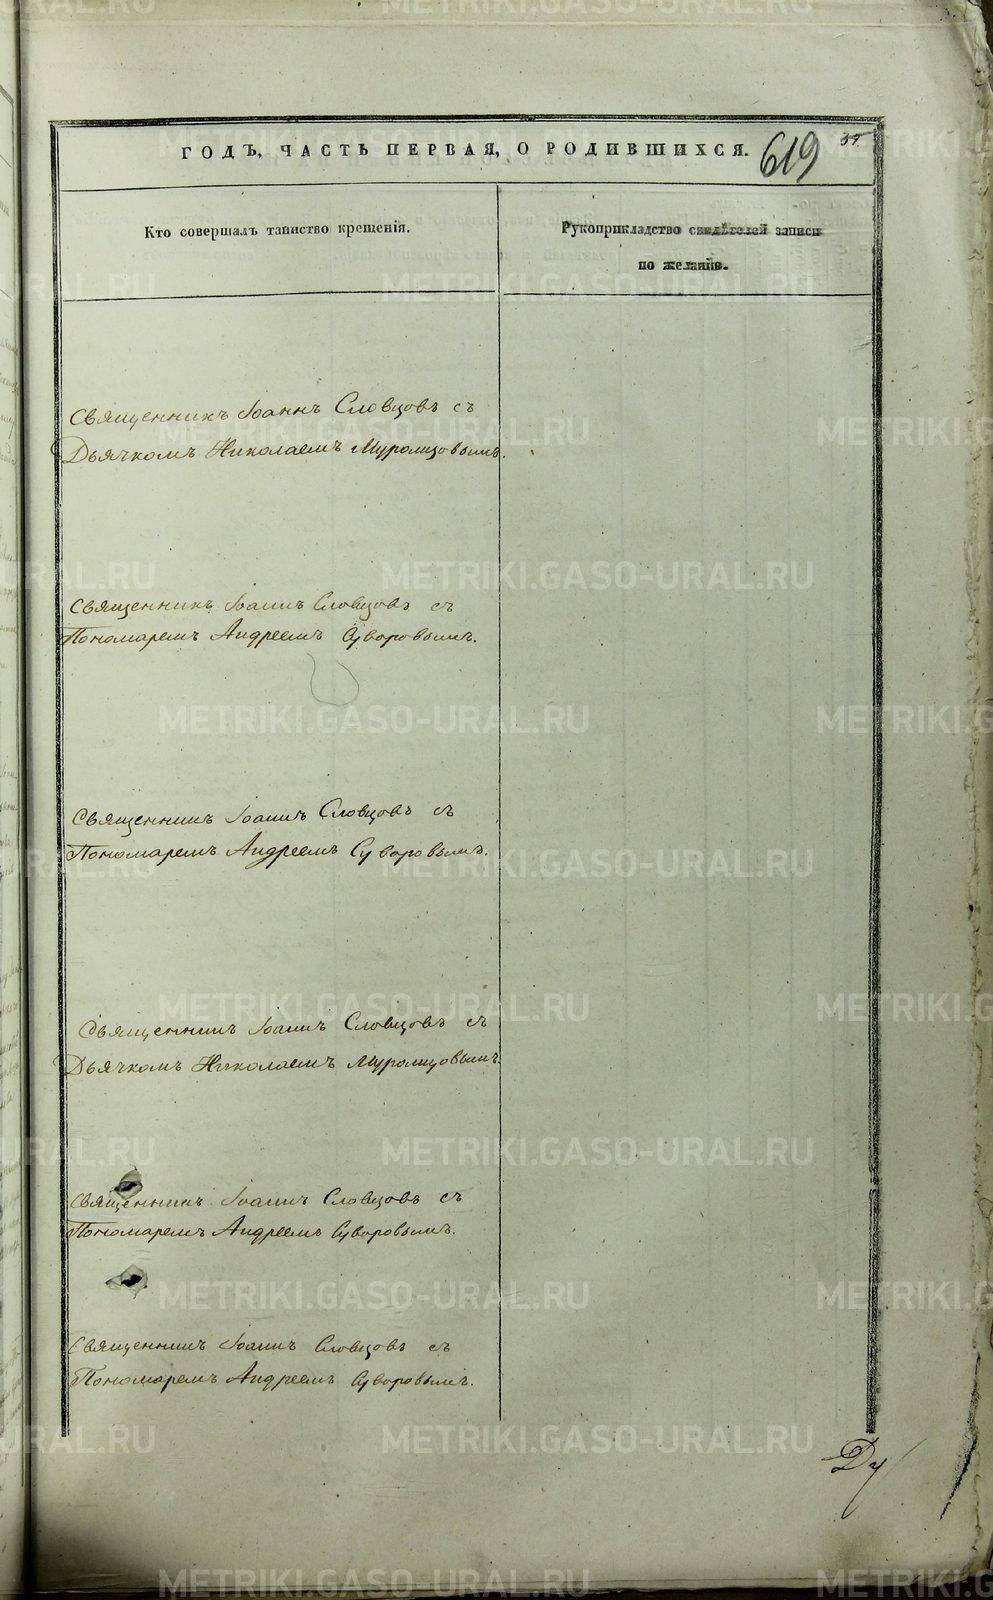 ГОДЪ, ЧАСТЬ ПЕРВАЯ, О РОДИВШИХСЯ.
619
Кто совершалъ таинство крещенія.
Рукоприкладство свидѣтелей записи
по желанію.
Священникъ Іоаннъ Словцовъ съ
Дьячкомъ Николаемъ Муромцовымъ.
Священникъ Іоаннъ Словцовъ съ
Пономаремъ Андреемъ Суворовымъ.
Священникъ Іоаннъ Словцовъ съ
Пономаремъ Андреемъ Суворовымъ.
Священникъ Іоаннъ Словцовъ съ
Дьячкомъ Николаемъ Муромцовымъ.
Священникъ Іоаннъ Словцовъ съ
Пономаремъ Андреемъ Суворовымъ.
Священникъ Іоаннъ Словцовъ съ
Пономаремъ Андреемъ Суворовымъ.
METRIKI.GASO-URAL.RU